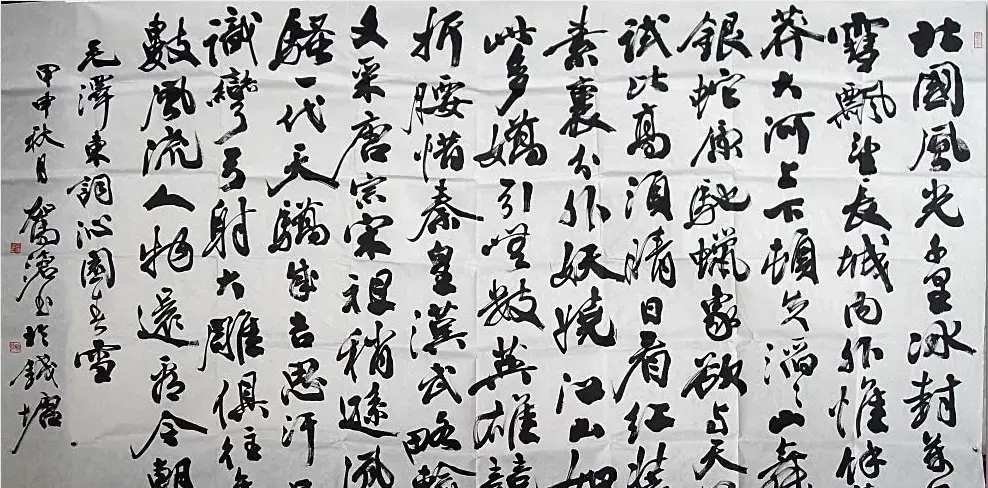 北國風光千里冰封萬
雪飄望長城內外惟餘
莽大河上下頓失滔〻山舞
銀蛇原馳蠟象欲與天
試比高須晴日看紅裝
素裹分外妖嬈江山如
此多嬌引無數英雄競
折腰惜秦皇漢武略輸
文采唐宗宋祖稍遜風
騷一代天驕成吉思汗
識彎弓射大雕俱往
數風流人物還看今朝
毛澤東詞沁園春雪
甲申秋月書於錢塘